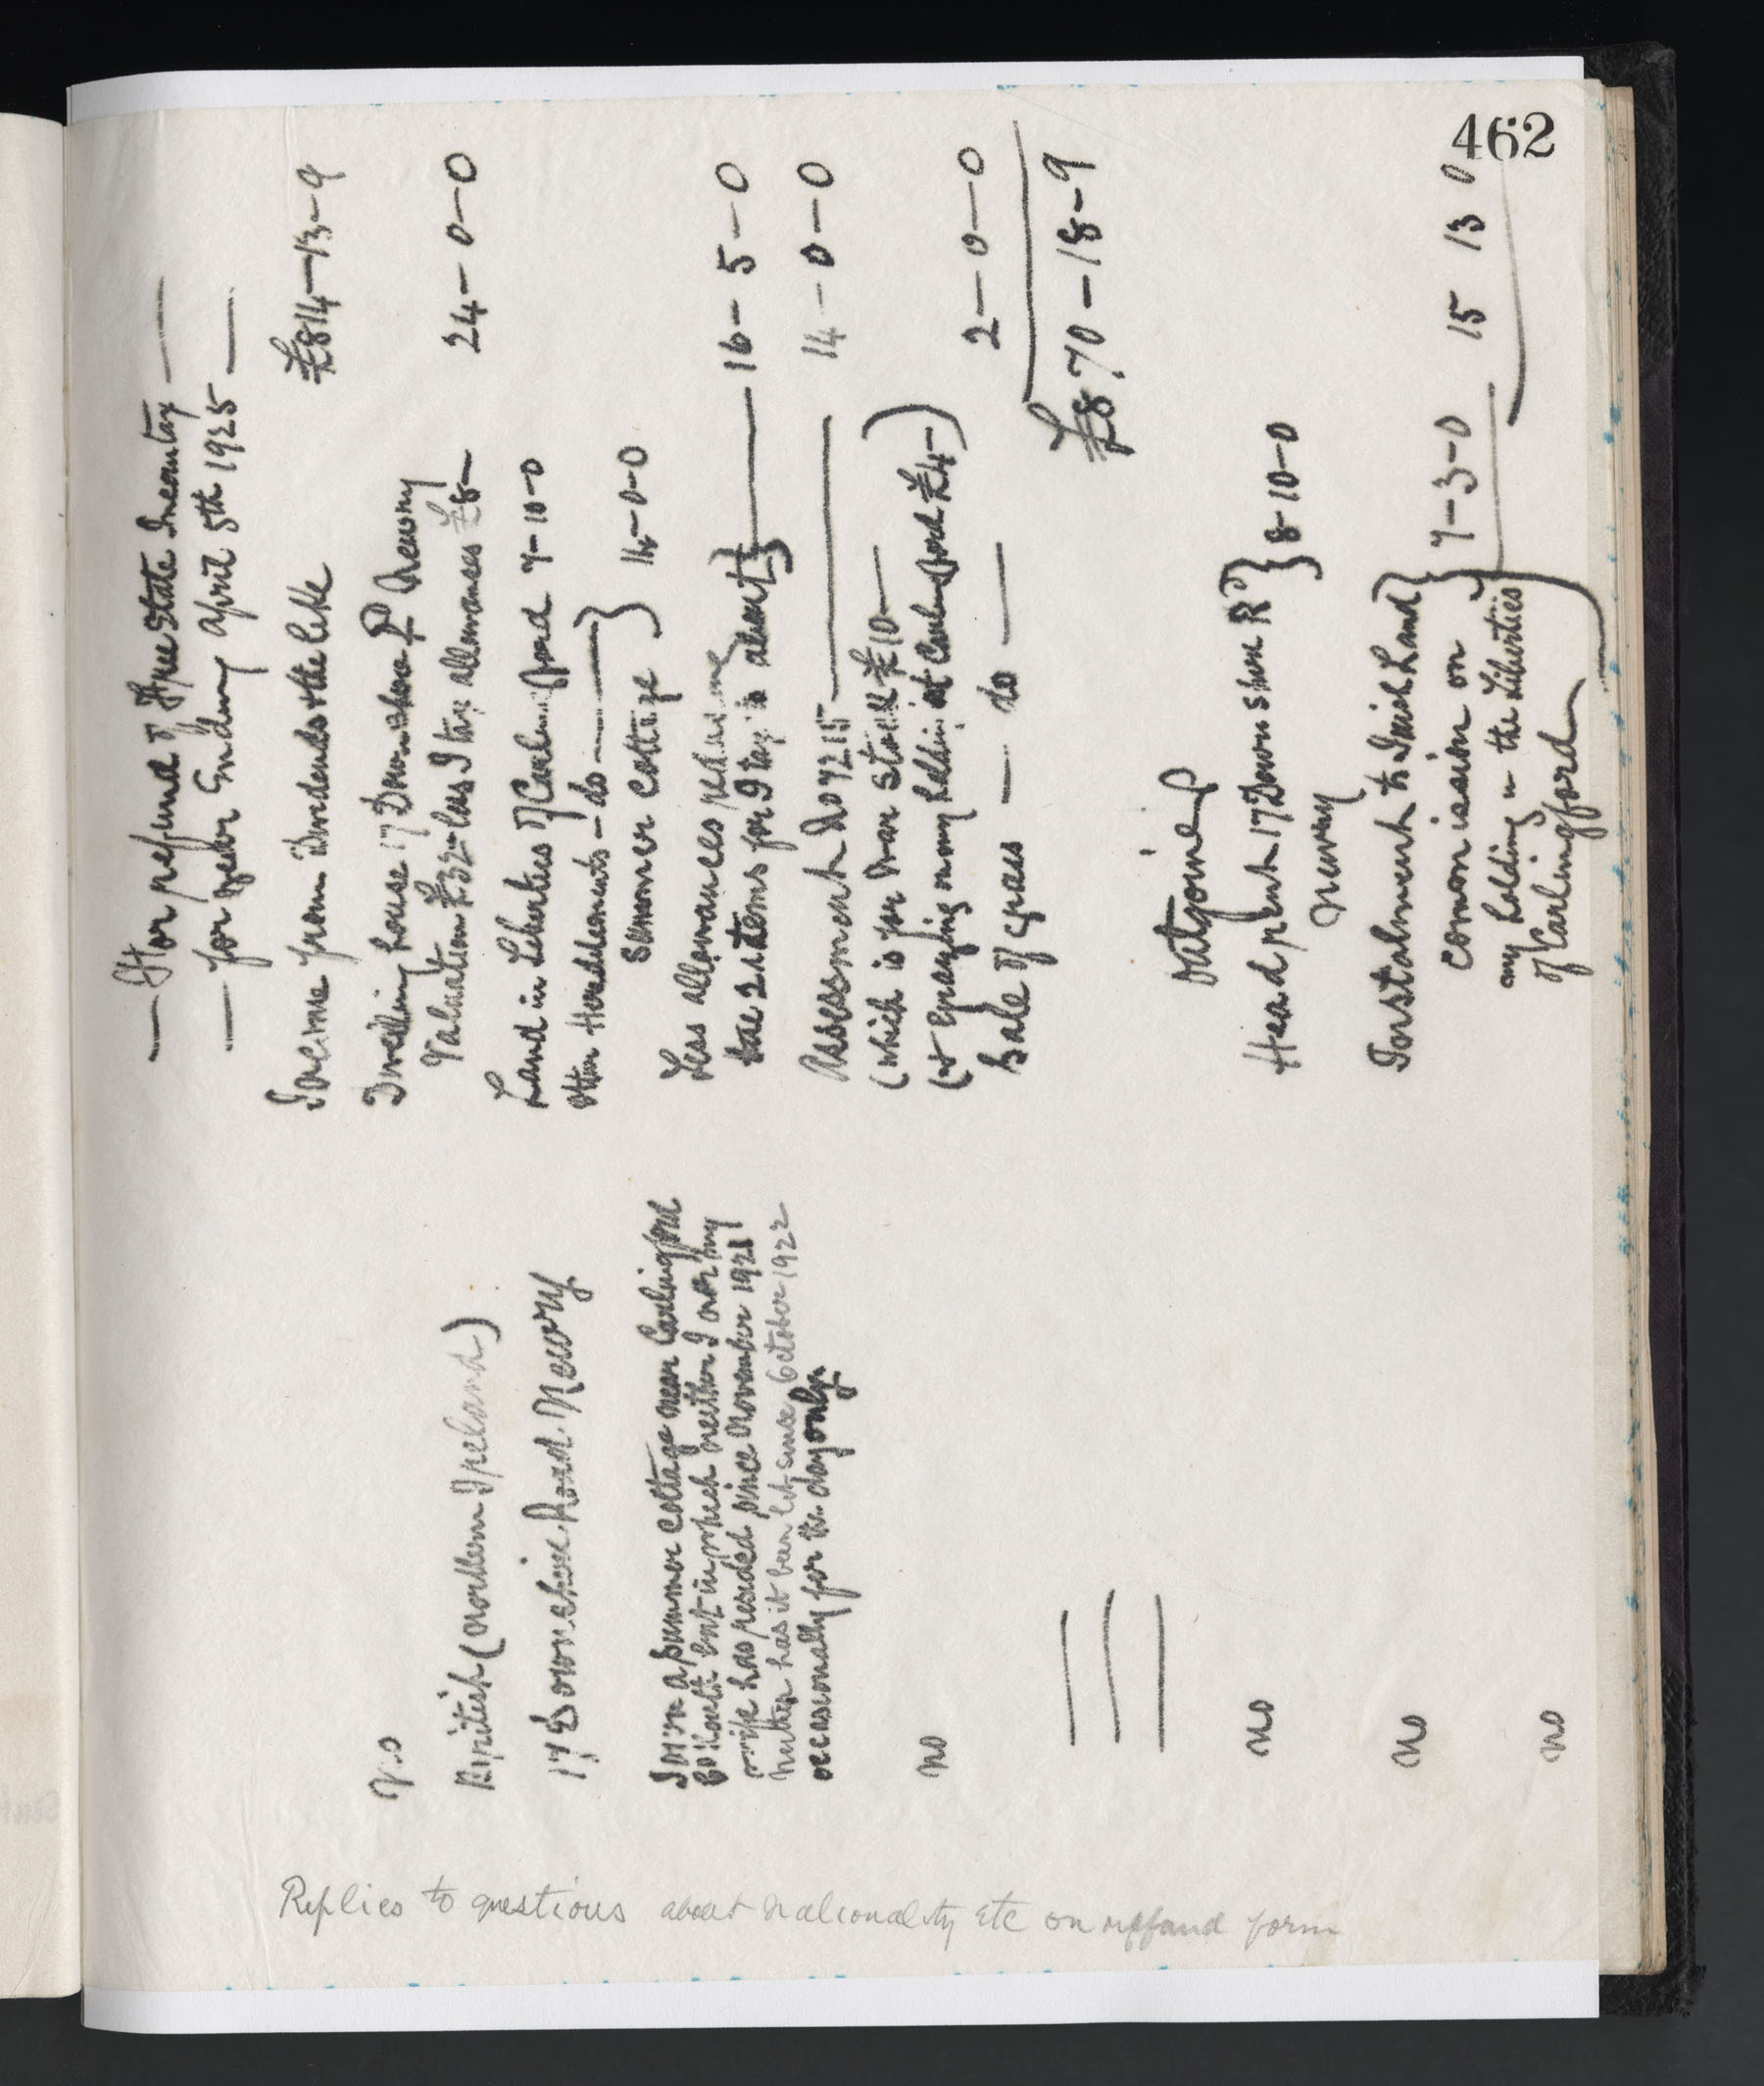 462
— For refund of Free State Incometax —
— for year Ending April 5th 1925 —
Income from Dividends & the like £814-13-9
Dwelling house 17 Downshire Rd Newry
Valuation £32- less I tax allowances £8- 24-0-0
Land in Liberties of Carlingford 7-10-0
Other Hereditaments - do -
Summer Cottage } 14-0-0
Less allowances
the 2 items for I tax is about } 16-5-0
Assessment No 7215 — 14-0-0
(which is for War Stock £10-
(& Grazing on my holding at Carlingford £4-)
Sale of grass — do — 2-0-0
£870-18-9
Outgoings
Head rent 17 Downshire Rd } 8-10-0
Newry
Instalment to Irish Land }
Commission on } 7-3-0 15 13 0
my holding in the Liberties
of Carlingford
No
British (Northern Ireland)
17 Downshire Road Newry
I own a summer cottage near Carlingford
Co Louth but in which neither I nor my
wife has resided since November 1921
neither has it been let since October 1922
occasionally for the day only.
No
No
No
No
Replies to questions about nationality etc on refund form